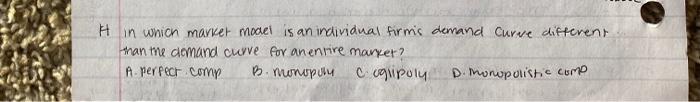 H in which market model is an individual firm's demand curve different
than the demand curve for an entire market?
A. perfect comp B. monopoly C. oglipoly D. Monopolistic comp